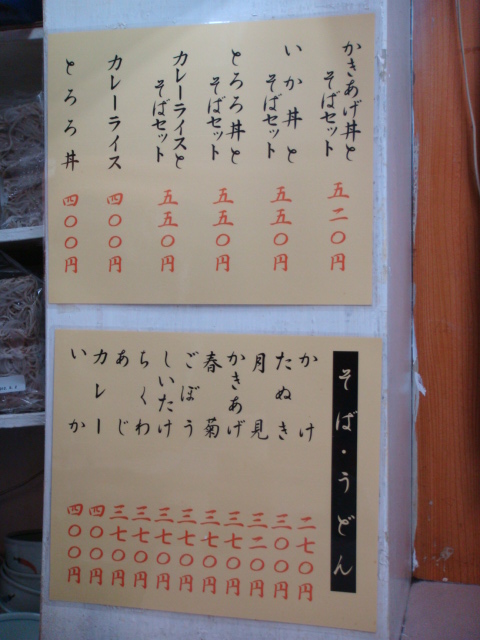 かきあげ丼と
そばセット 五二〇円
いか丼と
そばセット 五五〇円
とろろ丼と
そばセット 五五〇円
カレーライスと
そばセット 五五〇円
カレーライス 四〇〇円
とろろ丼 四〇〇円
そば・うどん
かけ 二七〇円
たぬき 三〇〇円
月見 三二〇円
かきあげ 三七〇円
春菊 三七〇円
ごぼう 三七〇円
しいたけ 三七〇円
ちくわ 三七〇円
あじ 三七〇円
カレー 四〇〇円
いか 四〇〇円